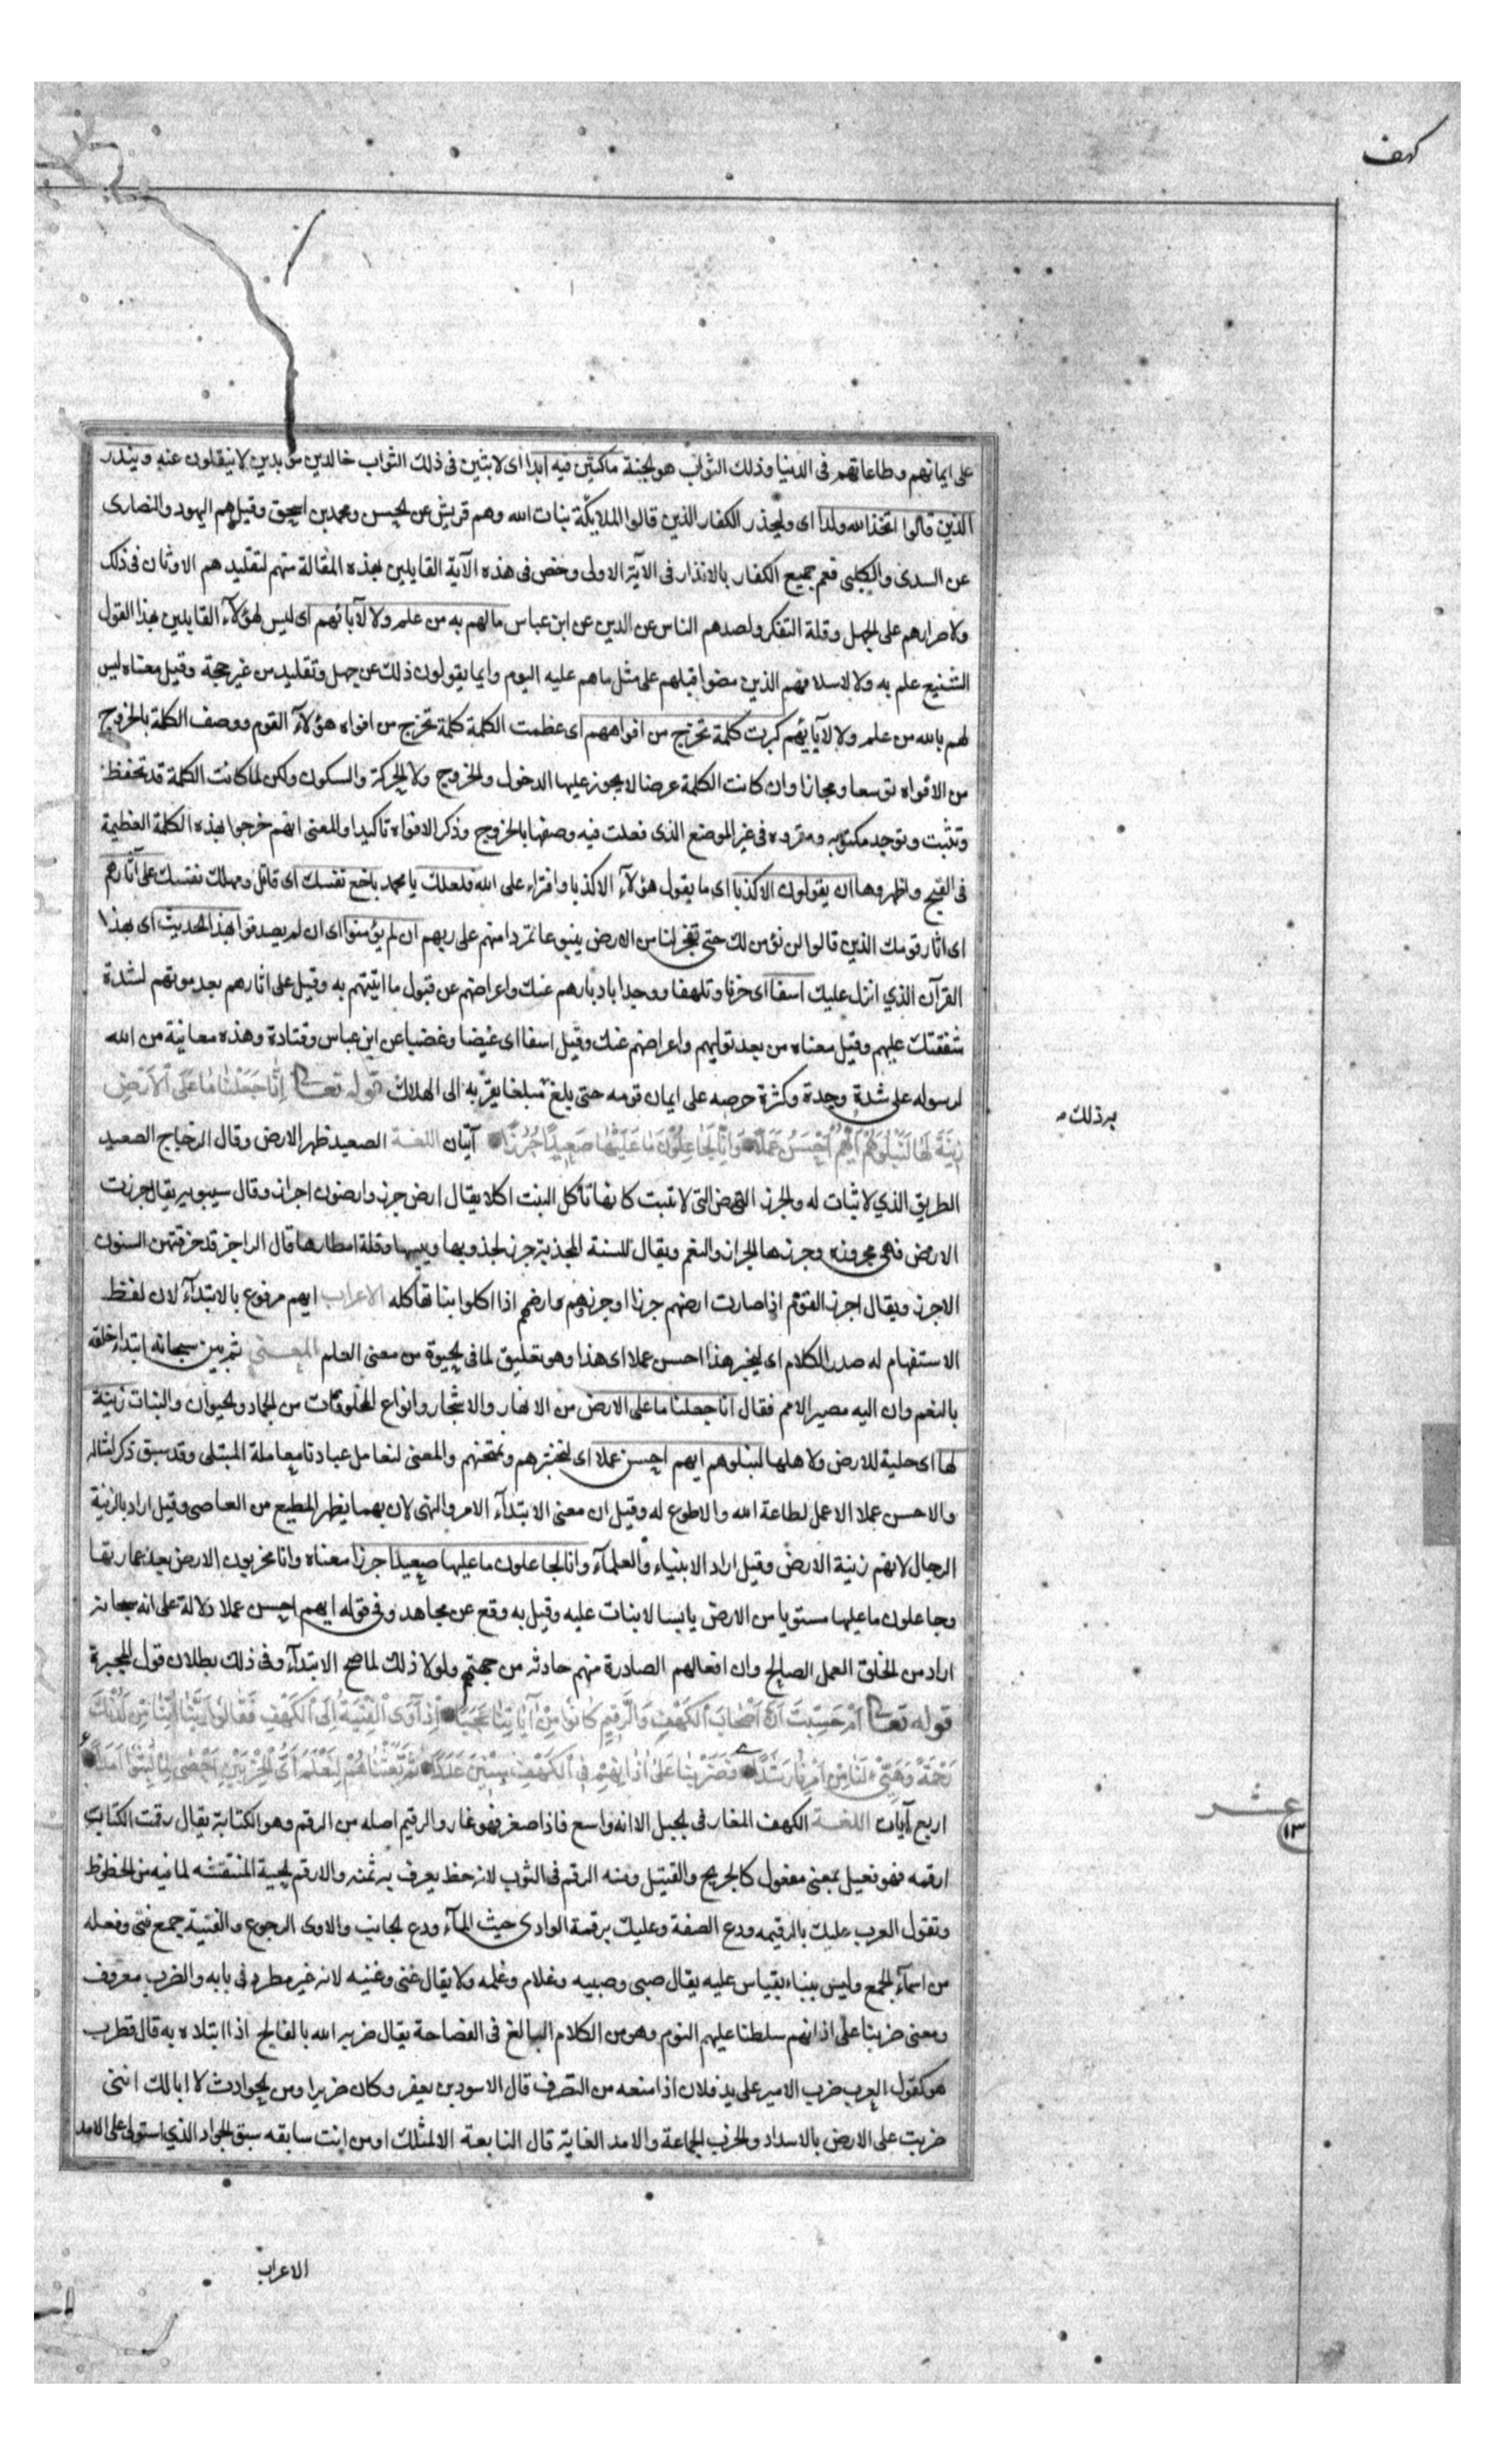 كهف
على ايمانهم وطاعاتهم فى الدنيا وذلك الثواب هو الجنة ماكثين فيه ابدا اى لابثين فى ذلك الثواب خالدين مؤبدين لا ينتقلون عنه وينذر
الذين قالوا اتخذ الله ولدا اى وليحذر الكفار الذين قالوا الملايكة بنات الله وهم قريش عن الحسن ومحمد بن اسحق وقيل هم اليهود والنصارى
عن السدى والكلبى فعم جميع الكفار بالانذار فى الآية الاولى وخص فى هذه الآية القايلين بهذه المقالة منهم لتقليدهم الاوثان فى ذلك
ولاصرارهم على الجهل وقلة التفكر ولصدهم الناس عن الدين عن ابن عباس مالهم به من علم ولا لآبائهم اى ليس لهؤلآء القايلين بهذا القول
الشنيع علم به ولا لاسلافهم الذين مضوا قبلهم على مثل ماهم عليه اليوم وانما يقولون ذلك عن جهل وتقليد من غير حجة وقيل معناه ليس
لهم بالله من علم ولا لآبائهم كبرت كلمة تخرج من افواههم اى عظمت الكلمة كلمة تخرج من افواه هؤلآء القوم ووصف الكلمة بالخروج
من الافواه توسعا ومجازا وان كانت الكلمة عرضا لا يجوز عليها الدخول والخروج ولا الحركة والسكون ولكن لما كانت الكلمة قد تحفظ
وتثبت وتوجد مكتوبه ومقروه فى غير الموضع الذى فعلت فيه وصفها بالخروج وذكر الافواه تاكيدا والمعنى انهم خرجوا بهذه الكلمة العظيمة
فى القبح واظهروها ان يقولون الا كذبا اى ما يقول هؤلآء الا كذبا وافتراء على الله فلعلك يا محمد باخع نفسك اى قاتل ومهلك نفسك على آثارهم
اى اثار قومك الذين قالوا لن نؤمن لك حتى تفجر لنا من الارض ينبوعا تمردا منهم على ربهم ان لم يؤمنوا اى ان لم يصدقوا بهذا الحديث اى بهذا
القرآن الذي انزل عليك اسفا اى حزنا وتلهفا ووجدا بادبارهم عنك واعراضهم عن قبول ما اتيتهم به وقيل على اثارهم بعد موتهم لشدة
شفقتك عليهم وقيل معناه من بعد توليهم واعراضهم عنك وقيل اسفا اى غيضا وغضبا عن ابن عباس وقتادة وهذه معاتبة من الله
لرسوله على شدة وجدة وكثرة حرصه على ايمان قومه حتى بلغ مبلغا يقربه الى الهلاك قوله تعالى إنا جعلنا ما على الأرض
برذلك
زينة لها لنبلوهم ايهم احسن عملا وانا لجاعلون ما عليها صعيدا جرزا آيتان اللغة الصعيد ظهر الارض وقال الزجاج الصعيد
الطريق الذي لا نبات له والجرز الارض التى لا تنبت كانها تأكل النبت اكلا يقال ارض جرز وارضون اجراز وقال سيبويه يقال جرزت
الارض فهى مجروزه وجرزها الجراز والنعم ويقال للسنة المجدبة جرز لجدوبها ويبسها وقلة امطارها قال الراجز قد جرفتهن السنون
الاجرز ويقال اجرز القوم اذا صارت ارضهم جرزا وجرزوهم وارضهم اذا اكلوا نباتها كله الاعراب ايهم مرفوع بالابتدآء لان لفظ
الاستفهام له صدر الكلام اى ليخبر هذا احسن عملا اى هذا وهو تعليق لما فى الحيوة من معنى العلم المعنى ثم بين سبحانه ابتداء خلقه
بالنعم وان اليه مصير الامم فقال انا جعلنا ما على الارض من الانهار والاشجار وانواع المخلوقات من الجماد والحيوان والنبات زينة
لها اى حلية للارض ولاهلها لنبلوهم ايهم احسن عملا اى لنختبرهم ونمتحنهم والمعنى لنعامل عبادنا معاملة المبتلى وقد سبق ذكر امثاله
والاحسن عملا الاعمل لطاعة الله والاطوع له وقيل ان معنى الابتدآء الامر والنهى لان بهما يظهر المطيع من العاصى وقيل اراد بالزينة
الرجال لانهم زينة الارض وقيل اراد الانبياء والعلمآء وانا لجاعلون ما عليها صعيدا جرزا معناه وانا مخربون الارض بعد عمارتها
وجاعلون ما عليها مستويا من الارض يابسا لا نبات عليه وقيل به وقع عن مجاهد وفى قوله ايهم احسن عملا دلالة على انه سبحانه
اراد من الخلق العمل الصالح وان افعالهم الصادرة منهم حادثه من جهتهم ولولا ذلك لما صح الابتدآء وفى ذلك بطلان قول المجبرة
قوله تعالى ام حسبت أن أصحاب الكهف والرقيم كانوا من آياتنا عجبا اذ آوى الفتية الى الكهف فقالوا ربنا آتنا من لدنك
رحمة وهيئ لنا من امرنا رشدا فضربنا على اذانهم فى الكهف سنين عددا ثم بعثناهم لنعلم اى الحزبين احصى لما لبثوا امدا
عشر
١٣
اربع آيات اللغة الكهف المغار فى الجبل الا انه واسع فاذا صغر فهو غار والرقيم اصله من الرقم وهو الكتابة يقال رقمت الكتاب
ارقمه فهو فعيل بمعنى مفعول كالجريح والقتيل ومنه الرقم فى الثوب لانه خط يعرف به ثمنه والارقم الحية المنقشه لما فيه من الخطوط
وتقول العرب عليك بالرقيمه ودع الصفة وعليك برقمة الوادى حيث المآء ودع الجانب والاوى الرجوع والفتية جمع فتى وفعله
من اسمآء الجمع وليس ببناء يقياس عليه يقال صبى وصبيه وغلام وغلمه ولا يقال غنى وغنيه لانه غير مطرد فى بابه والضرب معروف
ومعنى ضربنا على اذانهم سلطنا عليهم النوم وهو من الكلام البالغ فى الفصاحة يقال ضربه الله بالفالج اذا ابتلاه به قال قطرب
هو كقول العرب ضرب الامير على يد فلان اذا منعه من التصرف قال الاسود بن يعفر وكان ضريرا ومن الحوادث لا ابالك اننى
ضربت على الارض بالاسداد والحزب الجماعة والامد الغاية قال النابعة الا لمثلك او من انت سابقه سبق الجواد الذي استولى على الامد
الاعراب